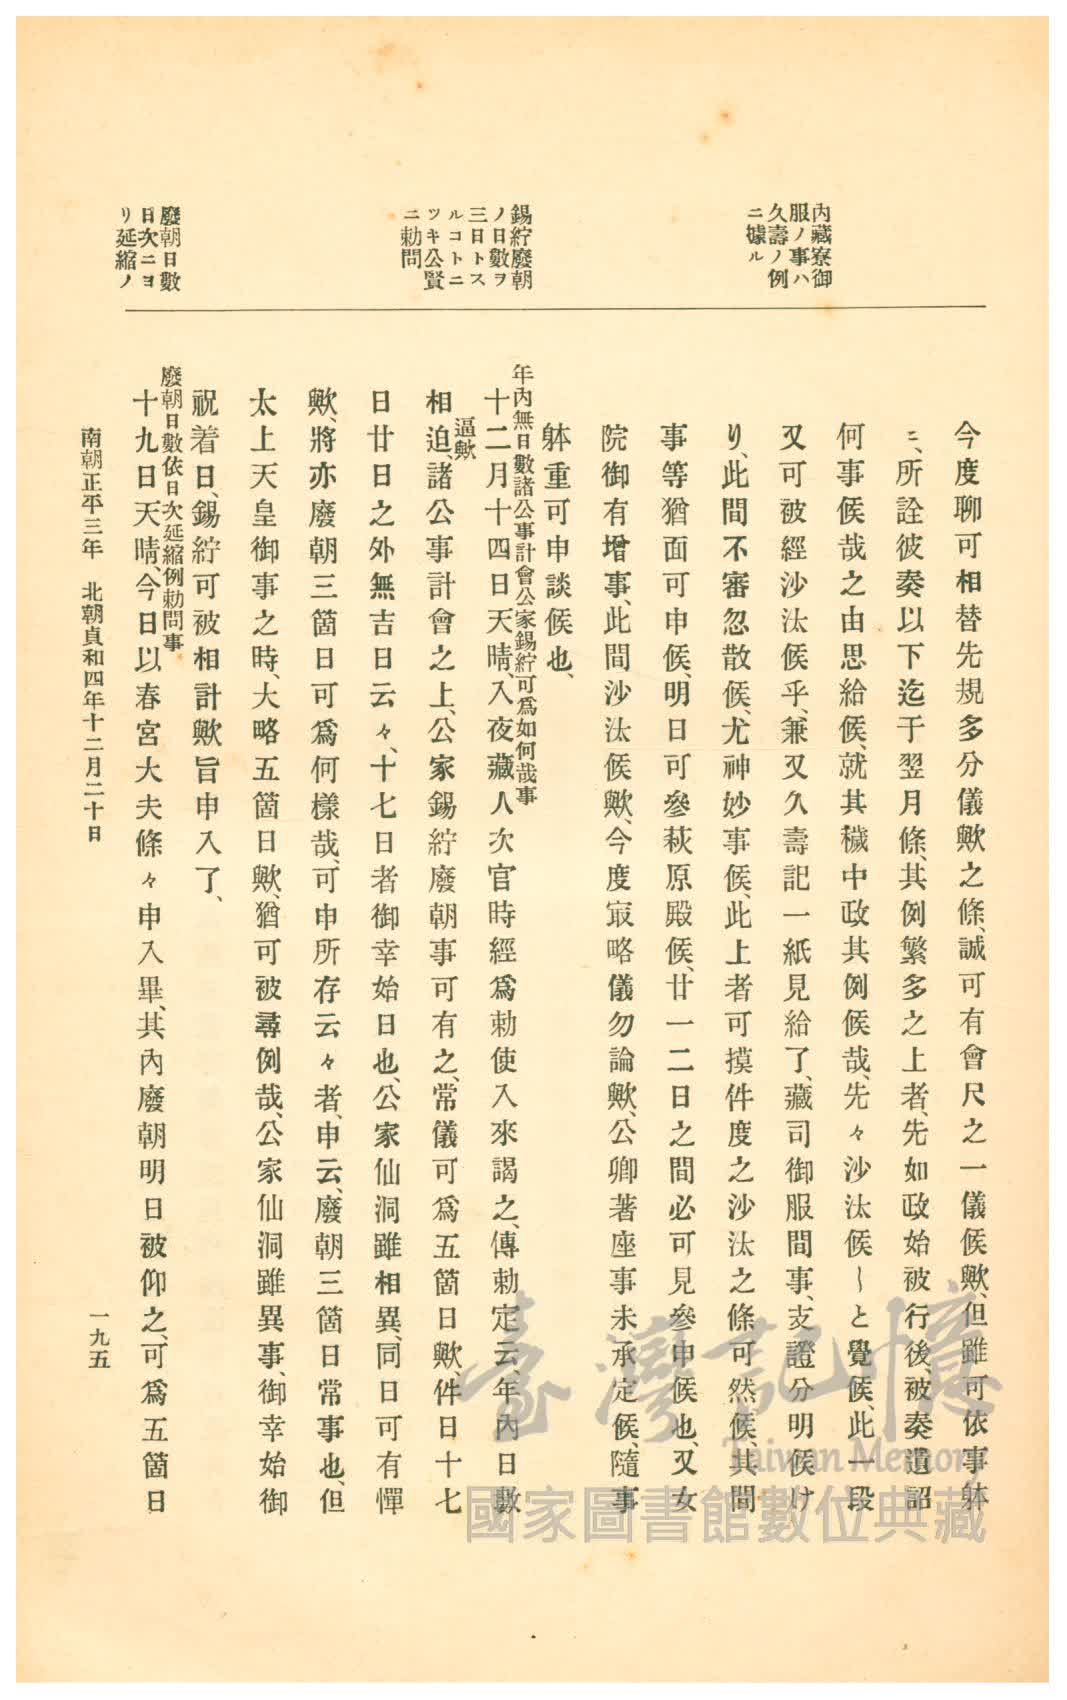 內藏寮御
服ノ事ハ
久壽ノ例
ニ據ル
錫紵廢朝
ノ日數ヲ
三日トス
ルコトニ
ツキ公賢
ニ勅問
廢朝日數
日次ニヨ
リ延縮ノ
今度聊可相替先規多分儀歟之條、誠可有會尺之一儀候歟、但雖可依事躰
ニ、所詮彼奏以下迄于翌月條、其例繁多之上者、先如政始被行後、被奏遺詔
何事候哉之由思給候、就其穢中政其例候哉、先々沙汰候〜と覺候、此一段
又可被經沙汰候乎、兼又久壽記一紙見給了、藏司御服間事、支證分明候け
り、此間不審忽散候、尤神妙事候、此上者可摸件度之沙汰之條可然候、其間
事等猶面可申候、明日可參萩原殿候、廿一二日之間必可見參申候也、又女
院御有增事、此間沙汰候歟、今度㝡略儀勿論歟、公卿著座事未承定候、隨事
躰重可申談候也、
年內無日數諸公事計會公家錫紵可爲如何哉事
十二月十四日天晴、入夜藏人次官時經爲勅使入來謁之、傳勅定云、年內日數
逼歟
相迫、諸公事計會之上、公家錫紵廢朝事可有之、常儀可爲五箇日歟、件日十七
日廿日之外無吉日云々、十七日者御幸始日也、公家仙洞雖相異、同日可有憚
歟、將亦廢朝三箇日可爲何樣哉、可申所存云々者、申云、廢朝三箇日常事也、但
太上天皇御事之時、大略五箇日歟、猶可被尋例哉、公家仙洞雖異事、御幸始御
祝着日、錫紵可被相計歟旨申入了、
廢朝日數依日次延縮例勅問事
十九日天晴、今日以春宮大夫條々申入畢、其內廢朝明日被仰之、可爲五箇日
南朝正平三年 北朝貞和四年十二月二十日
一九五
臺灣記憶
Taiwan Memory
國家圖書館數位典藏